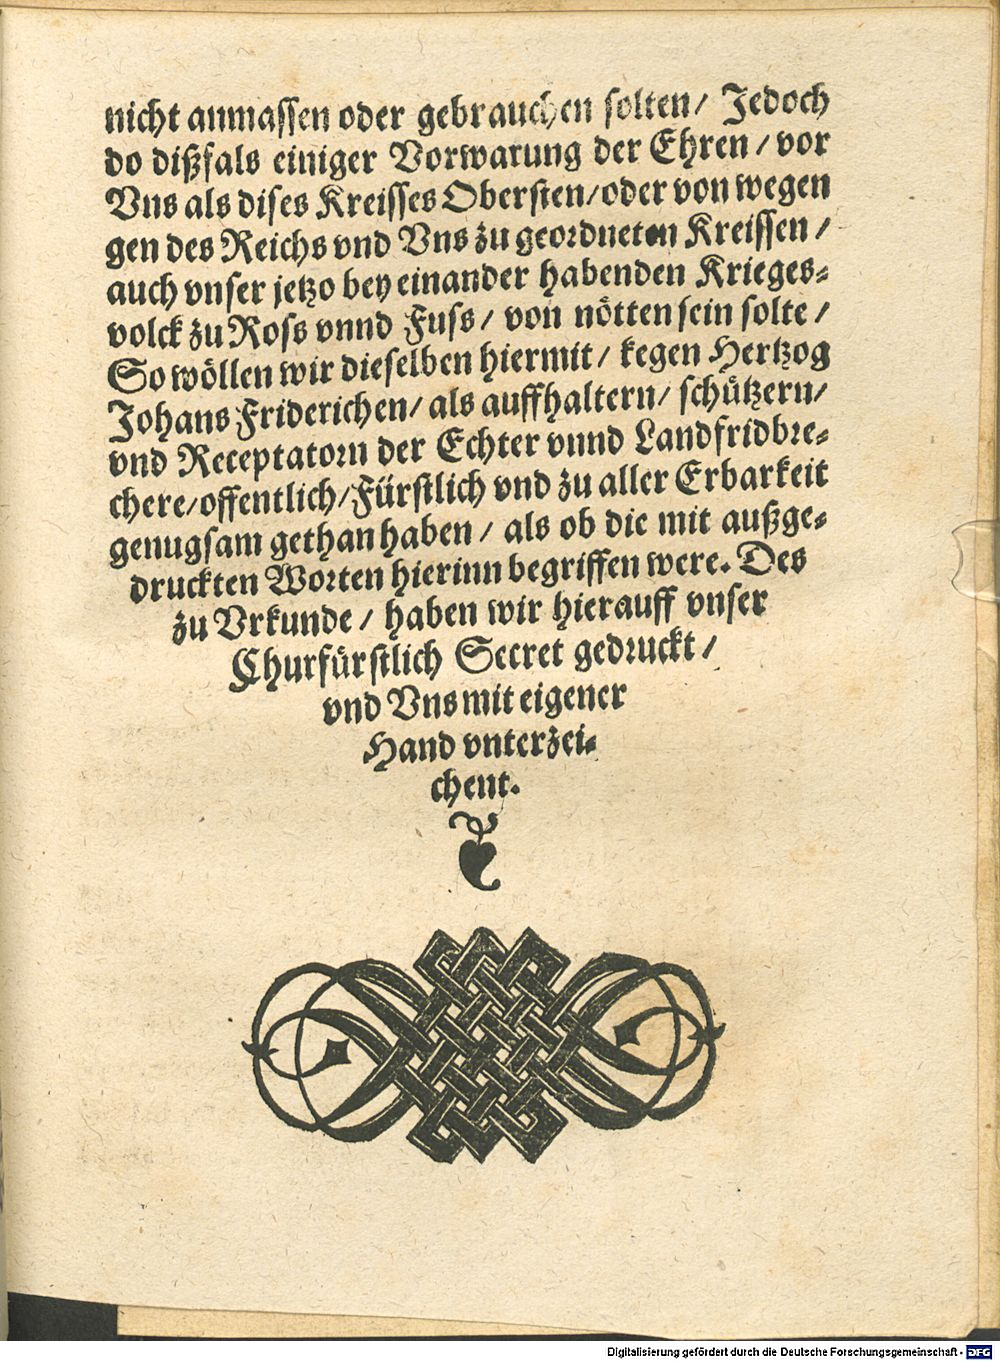 nicht anmassen oder gebrauchen solten/ Jedoch
do dißfals einiger Vorwarung der Ehren / vor
Vns als dises Kreisses Obersten/oder von wegen
gen des Reichs vnd Vns zu geordneten Kreissen /
auch vnser jetzo bey einander habenden Krieges-
volck zu Ross vnnd Fuss/ von nötten sein solte /
So wöllen wir dieselben hiermit/ kegen Hertzog
Johans Friderichen/ als auffhaltern/ schützern/
vnd Receptatorn der Echter vnnd Landfridbre-
chere/offentlich/Fürstlich vnd zu aller Erbarkeit
genugsam gethan haben / als ob die mit außge-
druckten Worten hierinn begriffen were. Des
zu Vrkunde / haben wir hierauff vnser
Churfürstlich Secret gedruckt /
vnd Vns mit eigener
Hand vnterzei-
chent.
Digitalisierung gefördert durch die Deutsche Forschungsgemeinschaft - DFG